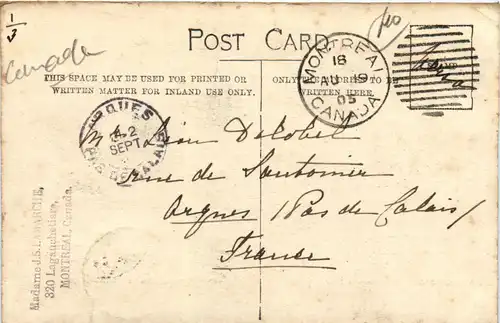 1/3
Canada
POST CARD
THIS SPACE MAY BE USED FOR PRINTED OR
WRITTEN MATTER FOR INLAND USE ONLY.
ONLY THE ADDRESS TO BE
WRITTEN HERE.
MONTREAL
18
AU 19
05
CANADA
ARQUES
2
SEPT
PAS DE CALAIS
Léon Delobel
rue de
Arques Pas de Calais
France
Madame J.E. LAMARCHE,
320 Lagauchetiere,
MONTREAL, Canada.